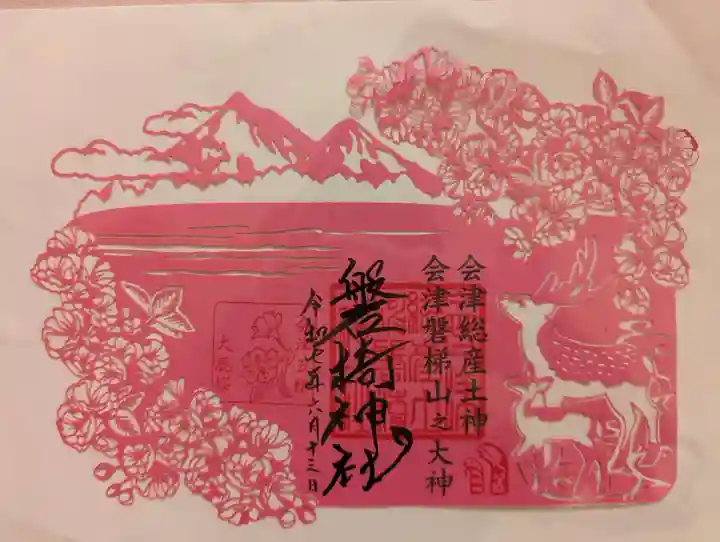 会津総産土神
会津磐梯山之大神
磐椅神社
令和七年六月十三日